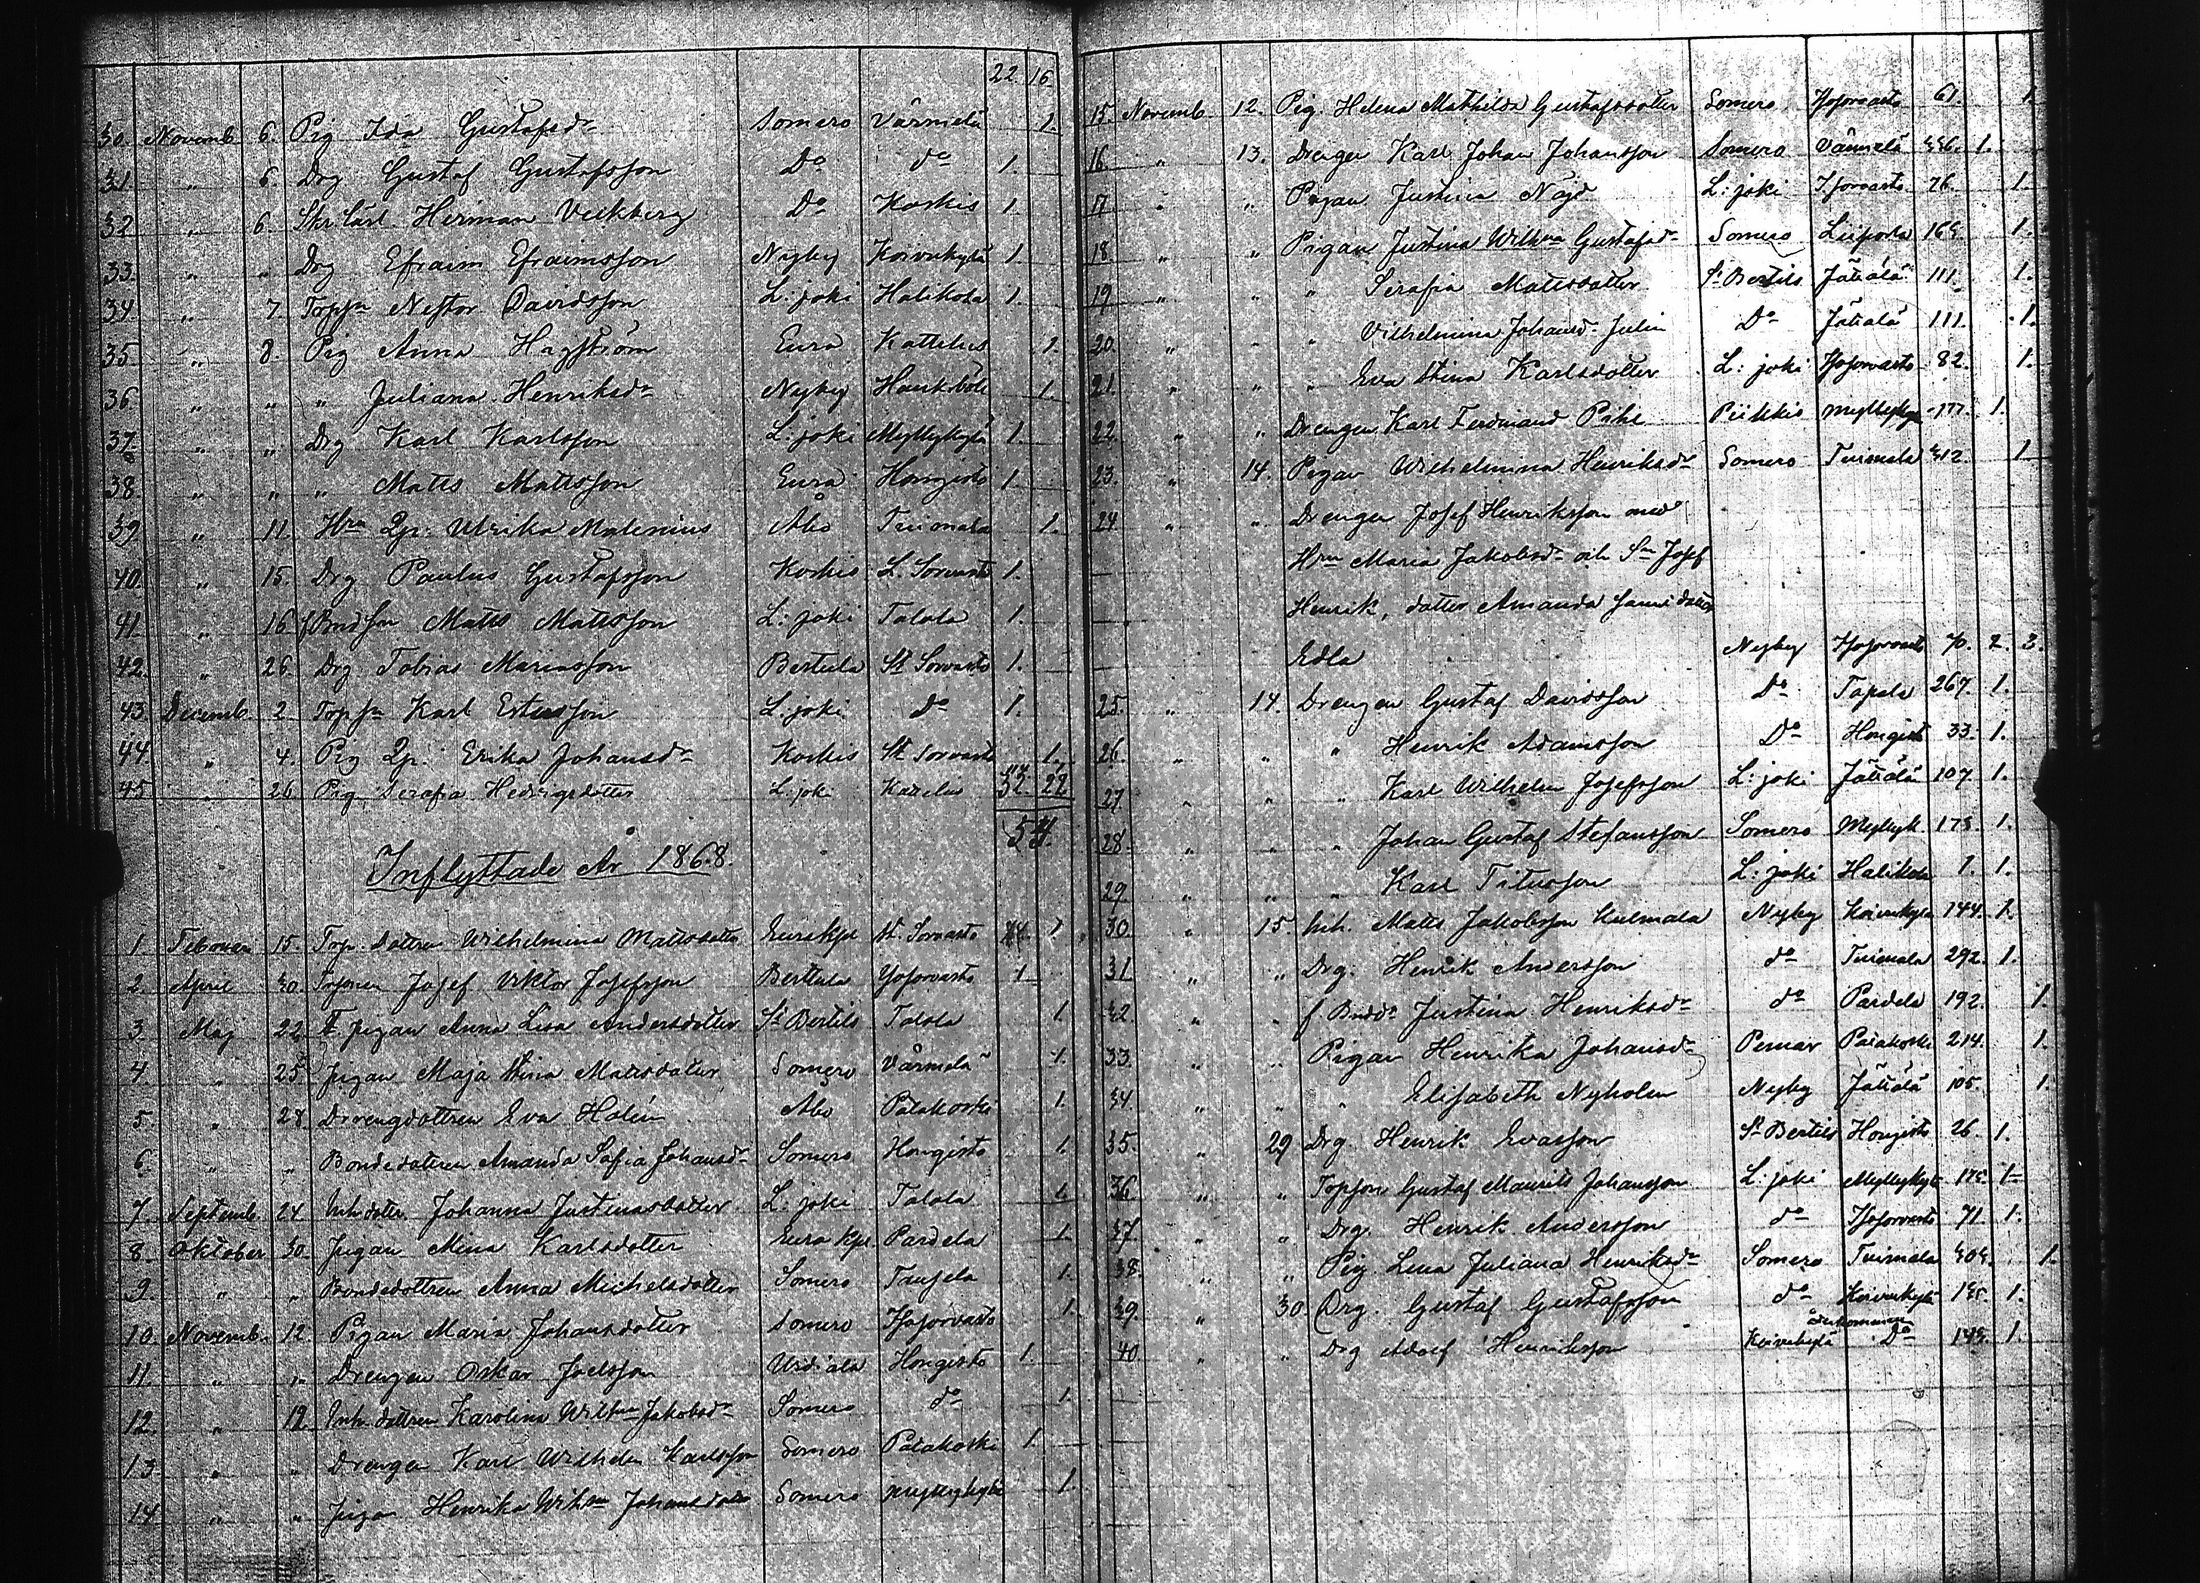 22. 16.
30. Novemb. 6. Pig Ida Gustafsdr Somero Värmelä 1.
31. " 6. Drg Gustaf Gustafsson Do do 1.
32 " 6. Skr. Carl Herman Veckberg Do Koskis 1.
33. " " Drg Efraim Efraimsson Nyby Koivukylä 1.
34 " 7. Topsn Nestor Davidsson L:joki Halikola 1.
35 " 8. Pig Anna Hagström Eura Kattelus 1.
36. " " " Juliana Henriksdr Nyby Haukböle 1.
37. " " Drg Karl Karlsson L:joki Myllykylä 1.
38. " " " Matts Mattsson Eura Hongisto 1.
39 " 11. Hru Ulrika Malenius Åbo Tuimala 1.
40. " 15. Drg Paulus Gustafsson Koskis L. Sorvasto 1.
41. " 16 f Bndson Matts Mattsson L:joki Talola 1.
42. " 26. Drg Tobias Mariasson Bertula St Sorvasto 1.
43. Decemb. 2. Topsn Karl Estersson L:joki do 1.
44. " 4. Pig Erika Johansdr Koskis St Sorvasto 1.
45 " 26 Pig Serafia Hedvigsdotter L:joki Kattelus 32. 22
54.
Inflyttade År 1868.
1. Februari 15. Top. dottren Wilhelmina Mattsdotter Eurakpl St. Sorvasto 1
2. April 30. Topsonen Josef Viktor Josefsson Bertula Ysosorvasto 1
3. Maj 22. pigan Anna Lisa Andersdotter St Bertils Talola 1.
4. " 25 pigan Maja Stina Mattsdotter Somero Värmelä 1.
5. " 28. Drengdottren Eva Holén Åbo Palakoski 1.
6. " " Bondedottren Amanda Sofia Johansdr Somero Hongisto 1.
7. Septemb. 24 Inh dotter Johanna Justinasdotter L:joki Talola 1.
8. Oktober 30. pigan Mina Karlsdotter Eura kpl. Pardela 1.
9. " " Bondedottren Anna Michelsdotter Somero Taupela 1.
10. Novemb. 12. Pigan Maria Johansdotter Somero Isosorvasto 1.
11. " " Drengen Oskar Joelsson Urdiala Hongisto 1.
12. " 12. Inh. dottren Karolina Wilhna Jakobsdr Somero do 1.
13 " " Drengen Karl Wilhelm Karlsson Somero Palakoski 1.
14 " " pigan Henrika Wilhna Johansdotter Somero Myllykylä 1.
15. Novemb. 12. Pig. Helena Mathilda Gustafsdotter Somero Isosorvasto 61. 1.
16. " 13. Drengen Karl Johan Johansson Somero Värmelä 336. 1.
17 " " Pigan Justina Nöjd L:joki Isosorvasto 76. 1.
18. " " Pigan Justina Wilhna Gustafsdr Somero Liipola 165. 1.
19 " " " Serafia Mattsdotter St Bertils Jätiälä 111. 1.
20. " " " Vilhelmina Johansdr Julin Do Jätiälä 111. 1.
21. " " " Eva Stina Karlsdotter L:joki Isosorvasto 82. 1.
22. " " Drengen Karl Ferdinand Pihl Piikkis Myllykylä 177. 1.
23. " 14. Pigan Wilhelmina Henriksdr Somero Tuimala 312. 1
24 " " Drengen Josef Henriksson med
Hru Maria Jakobsdr och Sn Josef
Henrik, dotter Amanda samt dotter
Edla Nyby Isosorvasto 70. 2. 3.
25. " 14. Drengen Gustaf Davidsson Do Tapala 267. 1.
26. " " " Henrik Adamsson Do Hongisto 33. 1.
27 " " " Karl Wilhelm Josefsson L:joki Jätiälä 107. 1.
28. " " " Johan Gustaf Stefansson Somero Myllyk. 175. 1.
29. " " " Karl Titusson L:joki Halikola 1. 1.
30 " 15. Inh. Matts Jakobsson Kulmala Nyby Koivukylä 144. 1.
31 " " Drg. Henrik Andersson do Tuimala 292. 1.
32 " " f Bnddr Justina Henriksdr do Pardela 192. 1.
33 " " Pigan Henrika Johansdr Pemar Palakoski 214. 1.
34. " " " Elisabeth Nyholm Nyby Jätiälä 105. 1.
35. " 29 Drg. Henrik Evasson St Bertils Hongisto 26. 1.
36. " " Topson Gustaf Maurits Johansson L:joki Myllykylä 175. 1
37. " " Drg. Henrik Andersson do Isosorvasto 71. 1.
38. " " Pig. Lena Juliana Henriksdr Somero Tuimala 305. 1.
39. " 30 Drg. Gustaf Gustafsson do Koivukylä 135. 1.
40 " " Drg Adolf Henriksson Koivukylä Do 145. 1.